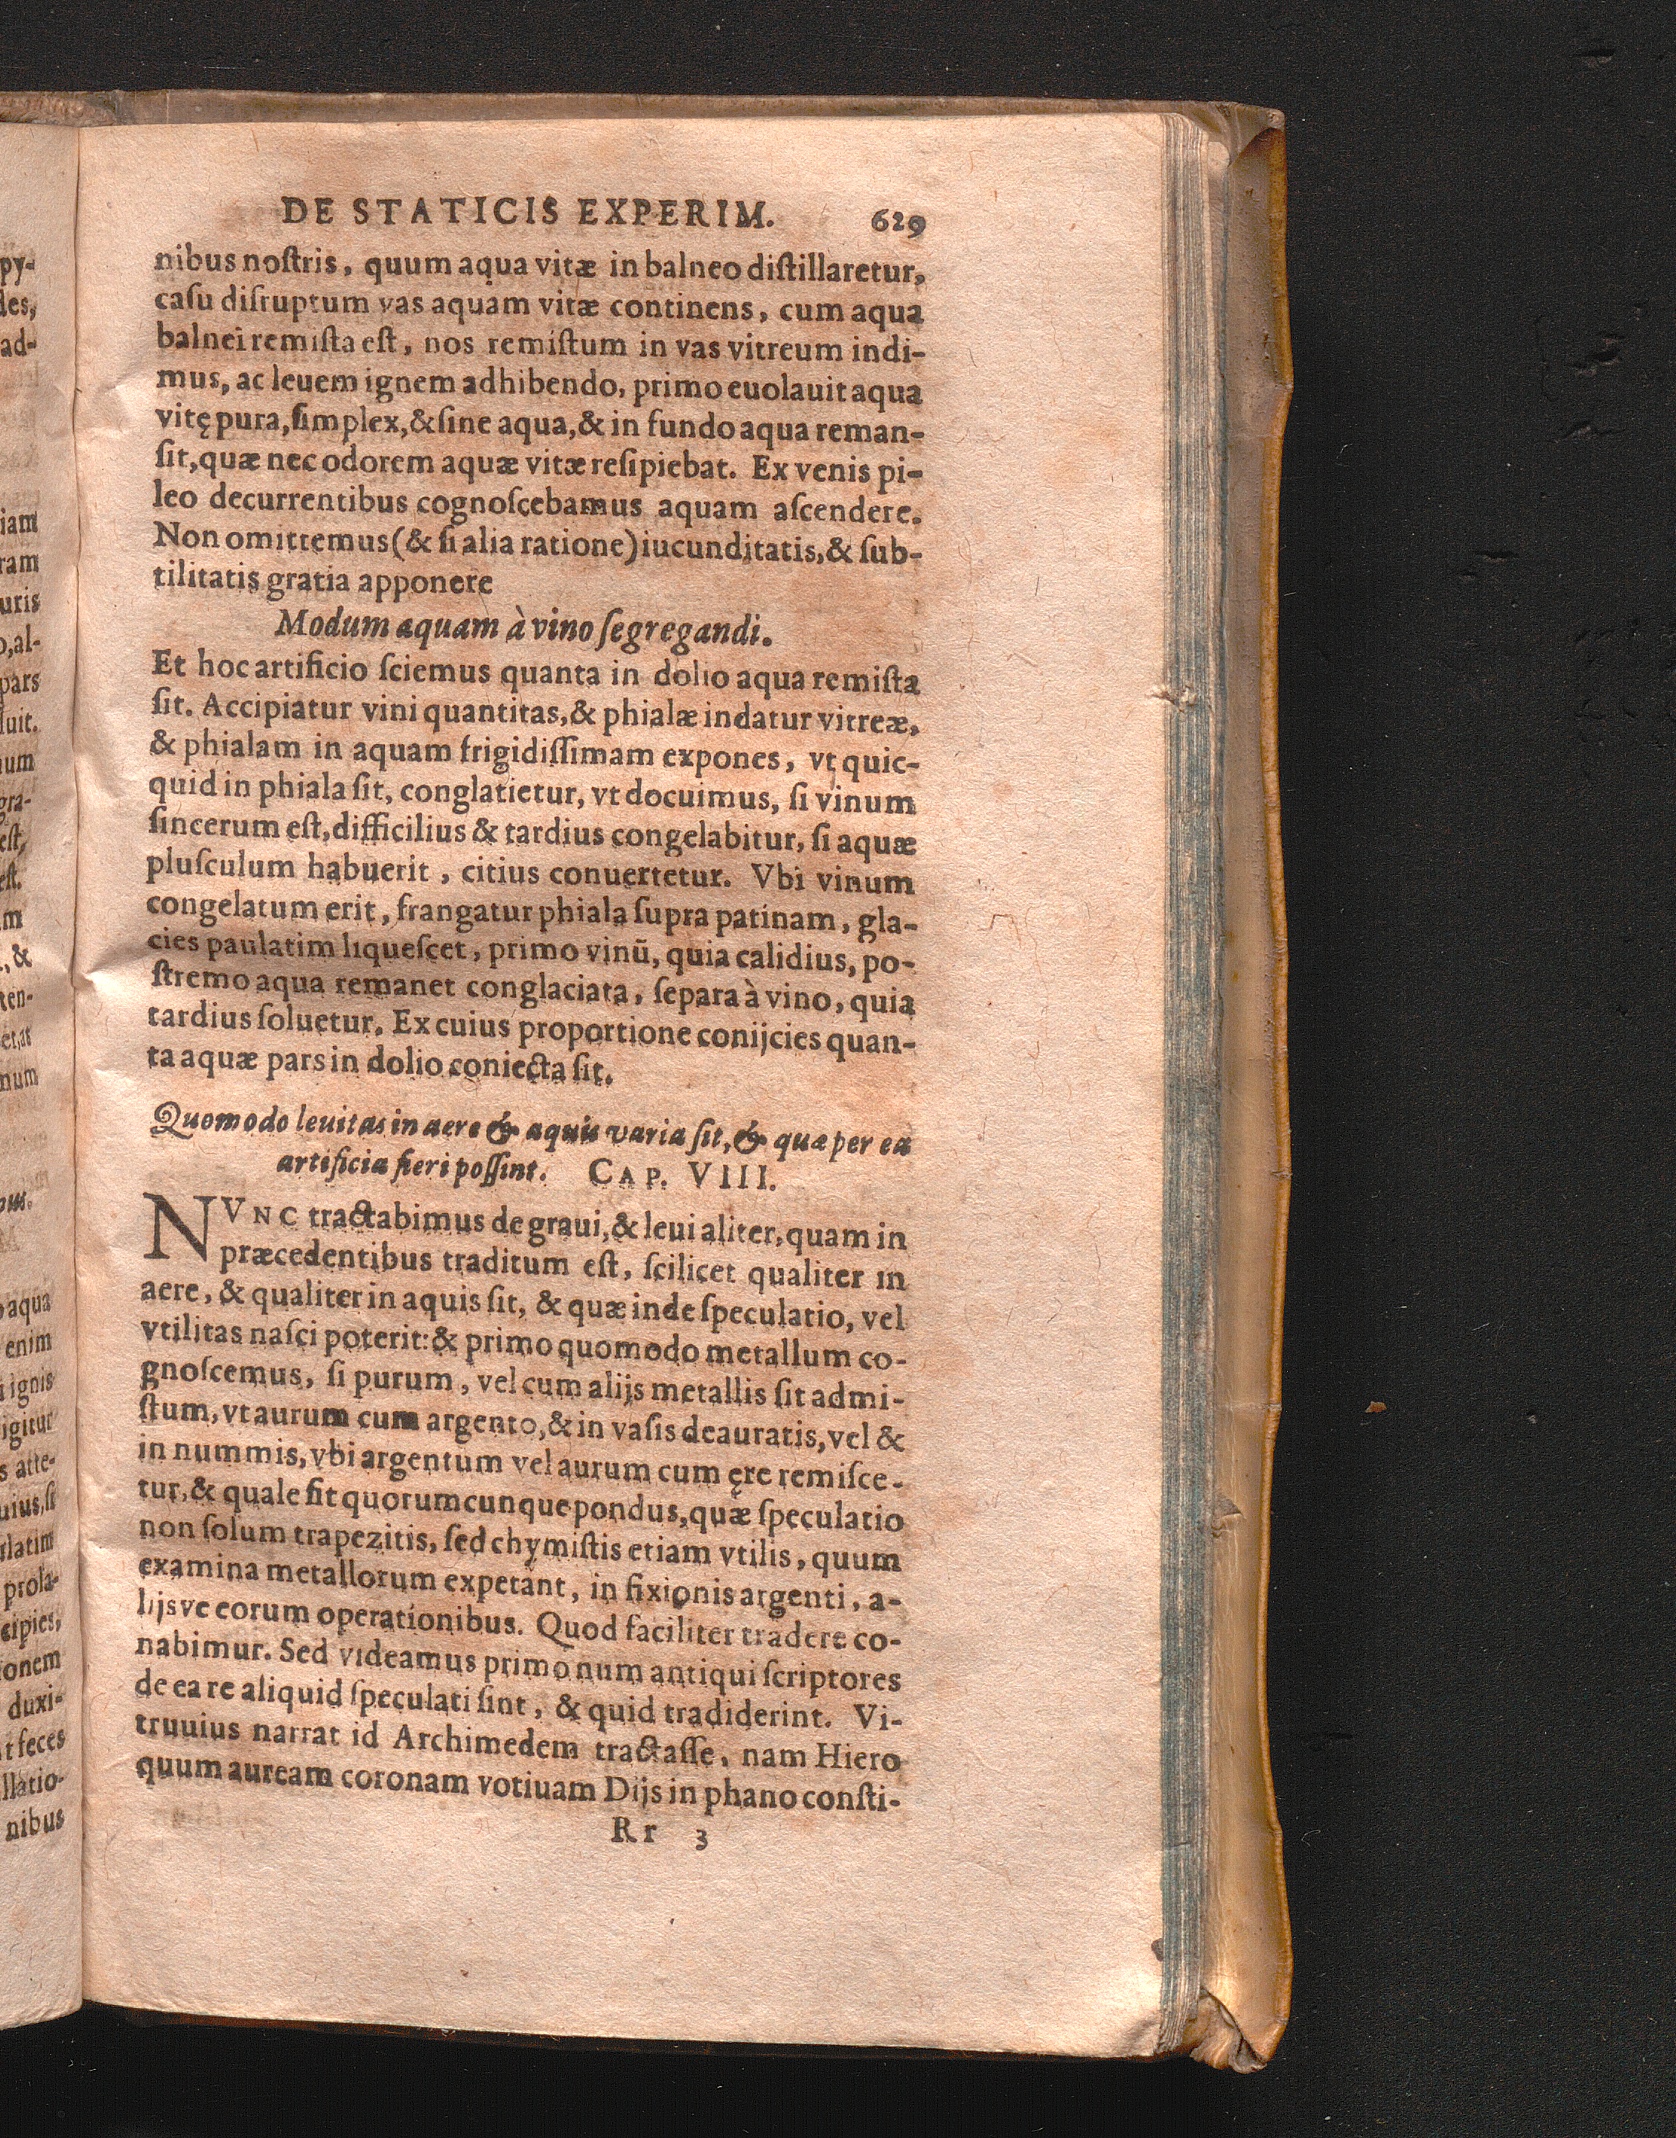 DE STATICIS EXPERIM. 629
nibus noſtris, quum aqua vitæ in balneo diſtillaretur,
caſu diſruptum vas aquam vitæ continens, cum aqua
balnei remiſta eſt, nos remiſtum in vas vitreum indi-
mus, ac leuem ignem adhibendo, primo euolauit aqua
vitę pura, ſimplex, & ſine aqua, & in fundo aqua reman-
ſit, quæ nec odorem aquæ vitæ reſipiebat. Ex venis pi-
leo decurrentibus cognoſcebamus aquam aſcendere.
Non omittemus (& ſi alia ratione) iucunditatis, & ſub-
tilitatis gratia apponere
Modum aquam à vino ſegregandi.
Et hoc artificio ſciemus quanta in dolio aqua remiſta
ſit. Accipiatur vini quantitas, & phialæ indatur vitreæ,
& phialam in aquam frigidiſſimam expones, vt quic-
quid in phiala ſit, conglatietur, vt docuimus, ſi vinum
ſincerum eſt, difficilius & tardius congelabitur, ſi aquæ
pluſculum habuerit, citius conuertetur. Vbi vinum
congelatum erit, frangatur phiala ſupra patinam, gla-
cies paulatim liqueſcet, primo vinū, quia calidius, po-
ſtremo aqua remanet conglaciata, ſepara à vino, quia
tardius ſoluetur. Ex cuius proportione conijcies quan-
ta aquæ pars in dolio coniecta ſit.
Quomodo leuitas in aere & aquis varia ſit, & quæ per ea
artificia fieri poſſint. CAP. VIII.
NVNC tractabimus de graui, & leui aliter, quam in
præcedentibus traditum eſt, ſcilicet qualiter in
aere, & qualiter in aquis ſit, & quæ inde ſpeculatio, vel
vtilitas naſci poterit: & primo quomodo metallum co-
gnoſcemus, ſi purum, vel cum alijs metallis ſit admi-
ſtum, vt aurum cum argento, & in vaſis deauratis, vel &
in nummis, vbi argentum vel aurum cum ęre remiſce-
tur, & quale ſit quorumcunque pondus, quæ ſpeculatio
non ſolum trapezitis, ſed chymiſtis etiam vtilis, quum
examina metallorum expetant, in fixionis argenti, a-
lijsve eorum operationibus. Quod faciliter tradere co-
nabimur. Sed videamus primo num antiqui ſcriptores
de ea re aliquid ſpeculati ſint, & quid tradiderint. Vi-
truuius narrat id Archimedem tractaſſe, nam Hiero
quum auream coronam votiuam Dijs in phano conſti-
Rr 3